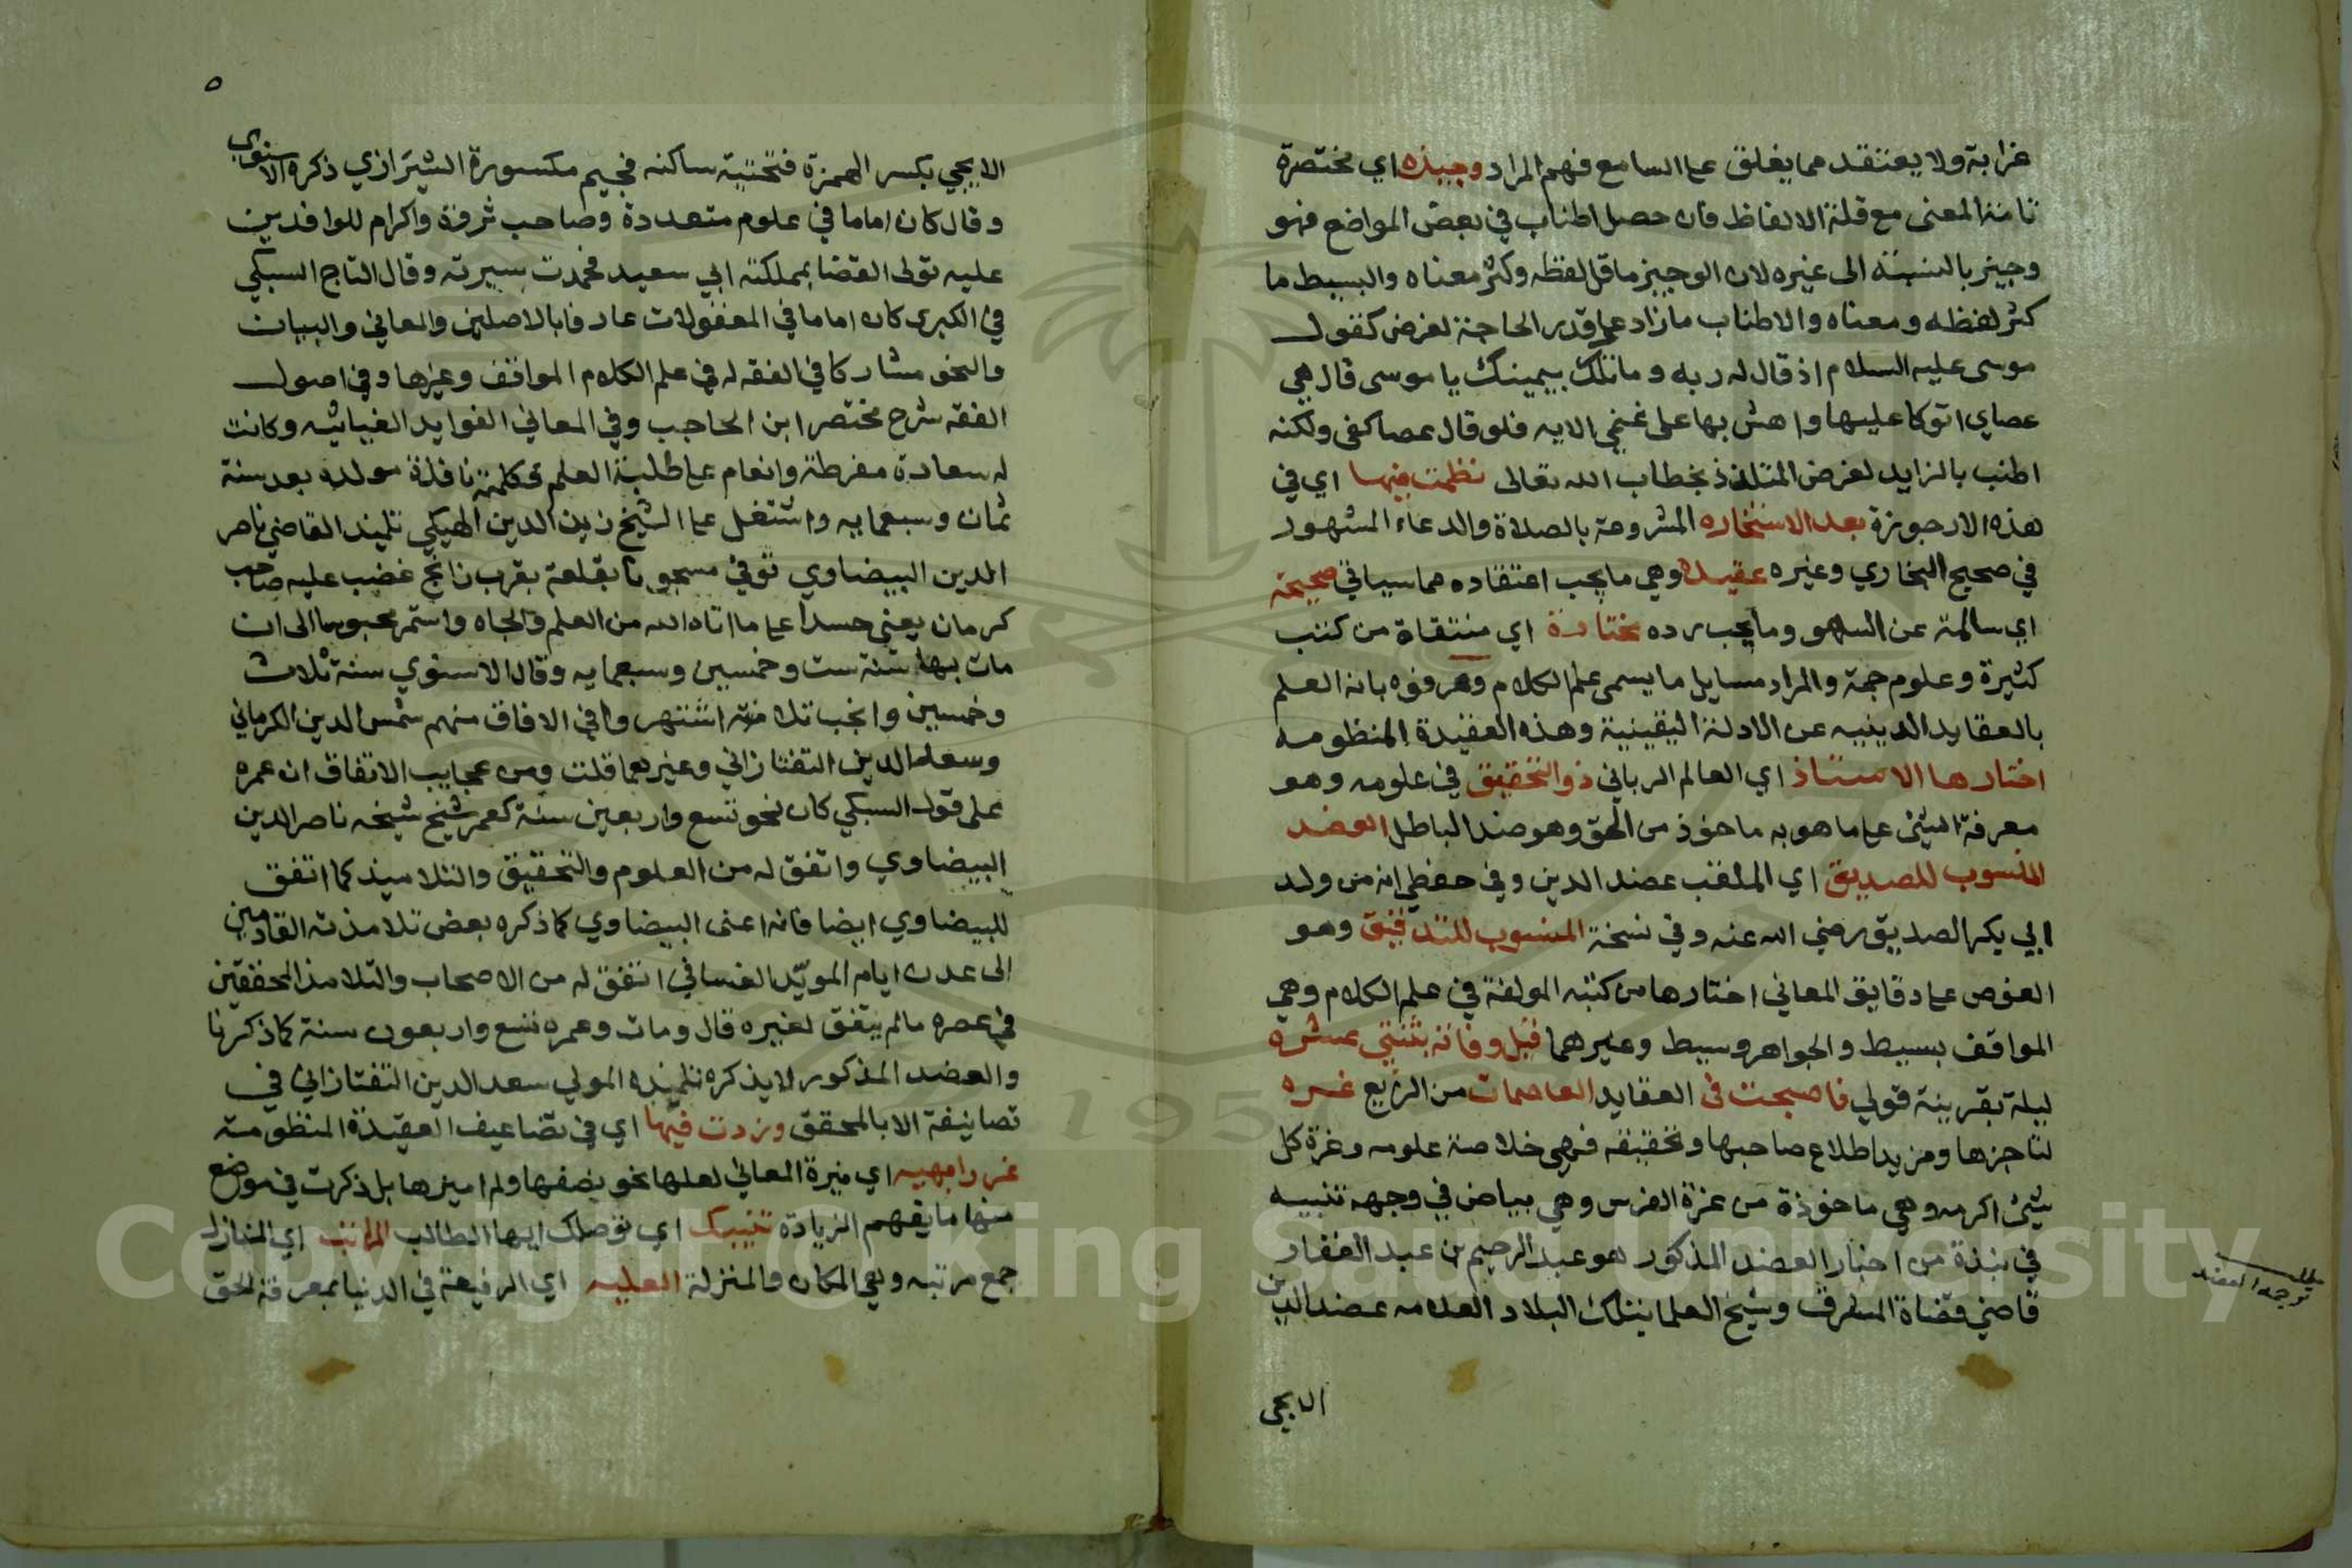 غرابة ولا يعتقد مما يغلق على السامع فهم المراد وجيزه اي مختصرة
تامة المعنى مع قلة الالفاظ فان حصل اطناب في بعض المواضع فهو
وجيز بالنسبة الى غيره لان الوجيز ما قل لفظه وكثر معناه والبسيط ما
كثر لفظه ومعناه والاطناب ما زاد على قدر الحاجة لغرض كقول
موسى عليه السلام اذ قال له ربه وما تلك بيمينك يا موسى قال هي
عصاي اتوكا عليها واهش بها على غنمي الايه فلو قال عصا كفى ولكنه
اطنب بالزايد لغرض التلذذ بخطاب الله تعالى نظمت فيها اي في
هذه الارجوزة بعد الاستخاره المشروعة بالصلاة والدعاء المشهور
في صحيح البخاري وغيره عقيدة وهي ما يجب اعتقاده مما سياتي صحيحة
اي سالمة عن السهو وما يجب رده مختارة اي منتقاة من كتب
كثيرة وعلوم جمة والمراد مسايل ما يسمى علم الكلام وعرفوه بانه العلم
بالعقايد الدينيه عن الادلة اليقينية وهذه العقيدة المنظومه
اختارها الاستاذ اي العالم الرباني ذو التحقيق في علومه وهو
معرفة الشئ على ما هو به ماخوذ من الحق وهو ضد الباطل العضد
المنسوب للصديق اي الملقب عضد الدين وفي حفظي انه من ولد
ابي بكر الصديق رضي الله عنه وفي نسخة المنسوب للتدقيق وهو
الغوص على دقايق المعاني اختارها من كتبه المولفة في علم الكلام وهي
المواقف بسيط والجواهر وسيط وغيرهما قبل وفاته بثنتي عشره
ليلة بقرينة قولي فاصبحت في العقايد العاصمات من الزيع غره
لتاجزها ومزيد اطلاع صاحبها وتحقيقه فهي خلاصة علومه وغرة كل
شئ اكرمه وهي ماخوذة من غرة الفرس وهي بياض في وجهه تنبيه
في نبذة من اخبار العضد المذكور هو عبد الرحيم بن عبد الغفار
قاضي قضاة المشرق وشيخ العلما بتلك البلاد العلامه عضد الدين
الايجي
مطلب
ترجمة العضد
٥
الايجي بكسر الهمزة فتحتية ساكنه فجيم مكسورة الشيرازي ذكره الاسنوي
وقال كان اماما في علوم متعددة وصاحب ثروة واكرام للوافدين
عليه تولى القضا بمملكة ابي سعيد فحمدت سيرته وقال التاج السبكي
في الكبرى كان اماما في المعقولات عارفا بالاصلين والمعاني والبيان
والنحو مشاركا في الفقه له في علم الكلام المواقف وغيرها وفي اصول
الفقه شرح مختصر ابن الحاجب وفي المعاني الفوايد الغياثيه وكانت
له سعادة مفرطة وانعام على طلبة العلم وكلمة نافذة مولده بعد سنة
ثمان وسبعمايه واشتغل على الشيخ زين الدين الهيكي تلميذ القاضي ناصر
الدين البيضاوي توفي مسجونا بقلعة بقرب زايج غضب عليه صاحب
كرمان يعني حسدا على ما اتاه الله من العلم والجاه واستمر محبوسا الى ان
مات بها سنة ست وخمسين وسبعمايه وقال الاسنوي سنة ثلاث
وخمسين وانجب تلامذة اشتهروا في الافاق منهم شمس الدين الكرماني
وسعد الدين التفتازاني وغيرهما قلت ومن عجايب الاتفاق ان عمره
على قول السبكي كان نحو تسع واربعين سنة كعمر شيخ شيخه ناصر الدين
البيضاوي واتفق له من العلوم والتحقيق والتلاميذ كما اتفق
للبيضاوي ايضا فانه اعنى البيضاوي كما ذكره بعض تلامذته القادمين
الى عدن ايام المويد الغساني اتفق له من الاصحاب والتلامذ المحققين
في عصره ما لم يتفق لغيره قال ومات وعمره تسع واربعون سنة كما ذكرنا
والعضد المذكور لا يذكره تلميذه المولى سعد الدين التفتازاني في
تصانيفه الا بالمحقق وزدت فيها اي في تضاعيف العقيدة المنظومة
غررا بهيه اي منيرة المعاني لعلها نحو نصفها ولم اميزها بل ذكرت في موضع
منها ما يفهم الزيادة تنيلك اي توصلك ايها الطالب المراتب اي المنازل
جمع مرتبه وهي المكان والمنزلة العليه اي الرفيعة في الدنيا بمعرفة الحق
Copyright © King Saud University
1957